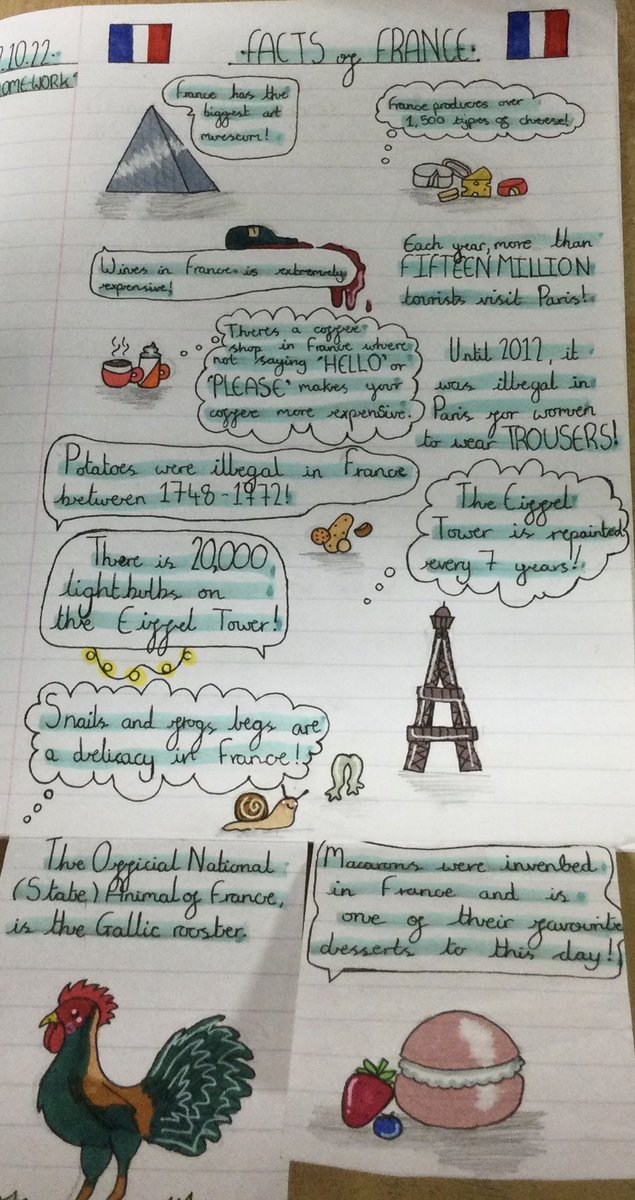 .10.22.
HOMEWORK.
FACTS of FRANCE.
France has the
biggest art
museum!
France produces over
1,500 types of cheese!
Wines in France is extremely
expensive!
Each year, more than
FIFTEEN MILLION
tourists visit Paris!
Theres a coffee
shop in France where
not saying 'HELLO' or
'PLEASE' makes your
coffee more expensive.
Until 2012, it
was illegal in
Paris for women
to wear TROUSERS!
Potatoes were illegal in France
between 1748-1972!
The Eiffel
Tower is repainted
every 7 years!
There is 20,000
lightbulbs on
the Eiffel Tower!
Snails and frogs legs are
a delicacy in France!
The Official National
(State) Animal of France,
is the Gallic rooster.
Macarons were invented
in France and is
one of their favourite
desserts to this day!